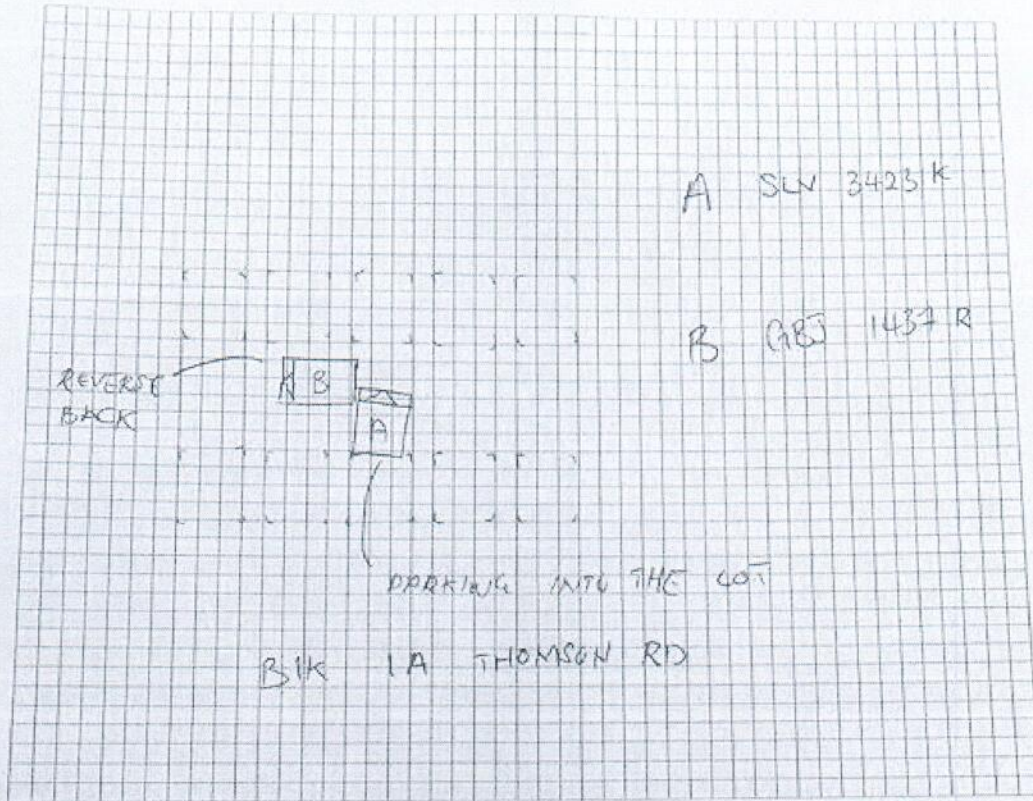 A SLV 3423 K
B GBJ 1437 R
REVERSE
BACK
B
A
PARKING INTO THE LOT
BIK 1A THOMSON RD